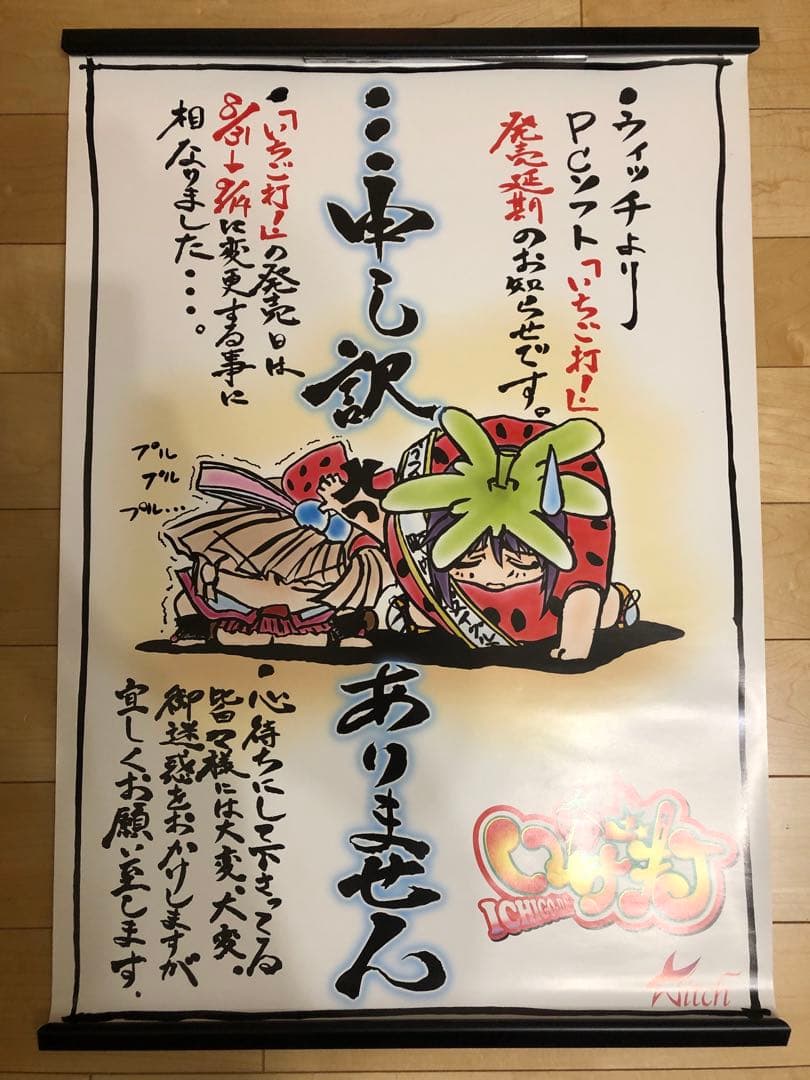 ・ウィッチより
PCソフト「いちご打!」
発売延期のお知らせです。
・・・申し訳ありません
・「いちご打!」の発売日は
8/31→9/14に変更する事に
相なりました・・・。
プル
プル
プル…
・心待ちにして下さってる
皆々様には大変、大変。
御迷惑をおかけしますが
宜しくお願い至します.
いちご打
ICHIGO-DA
Witch